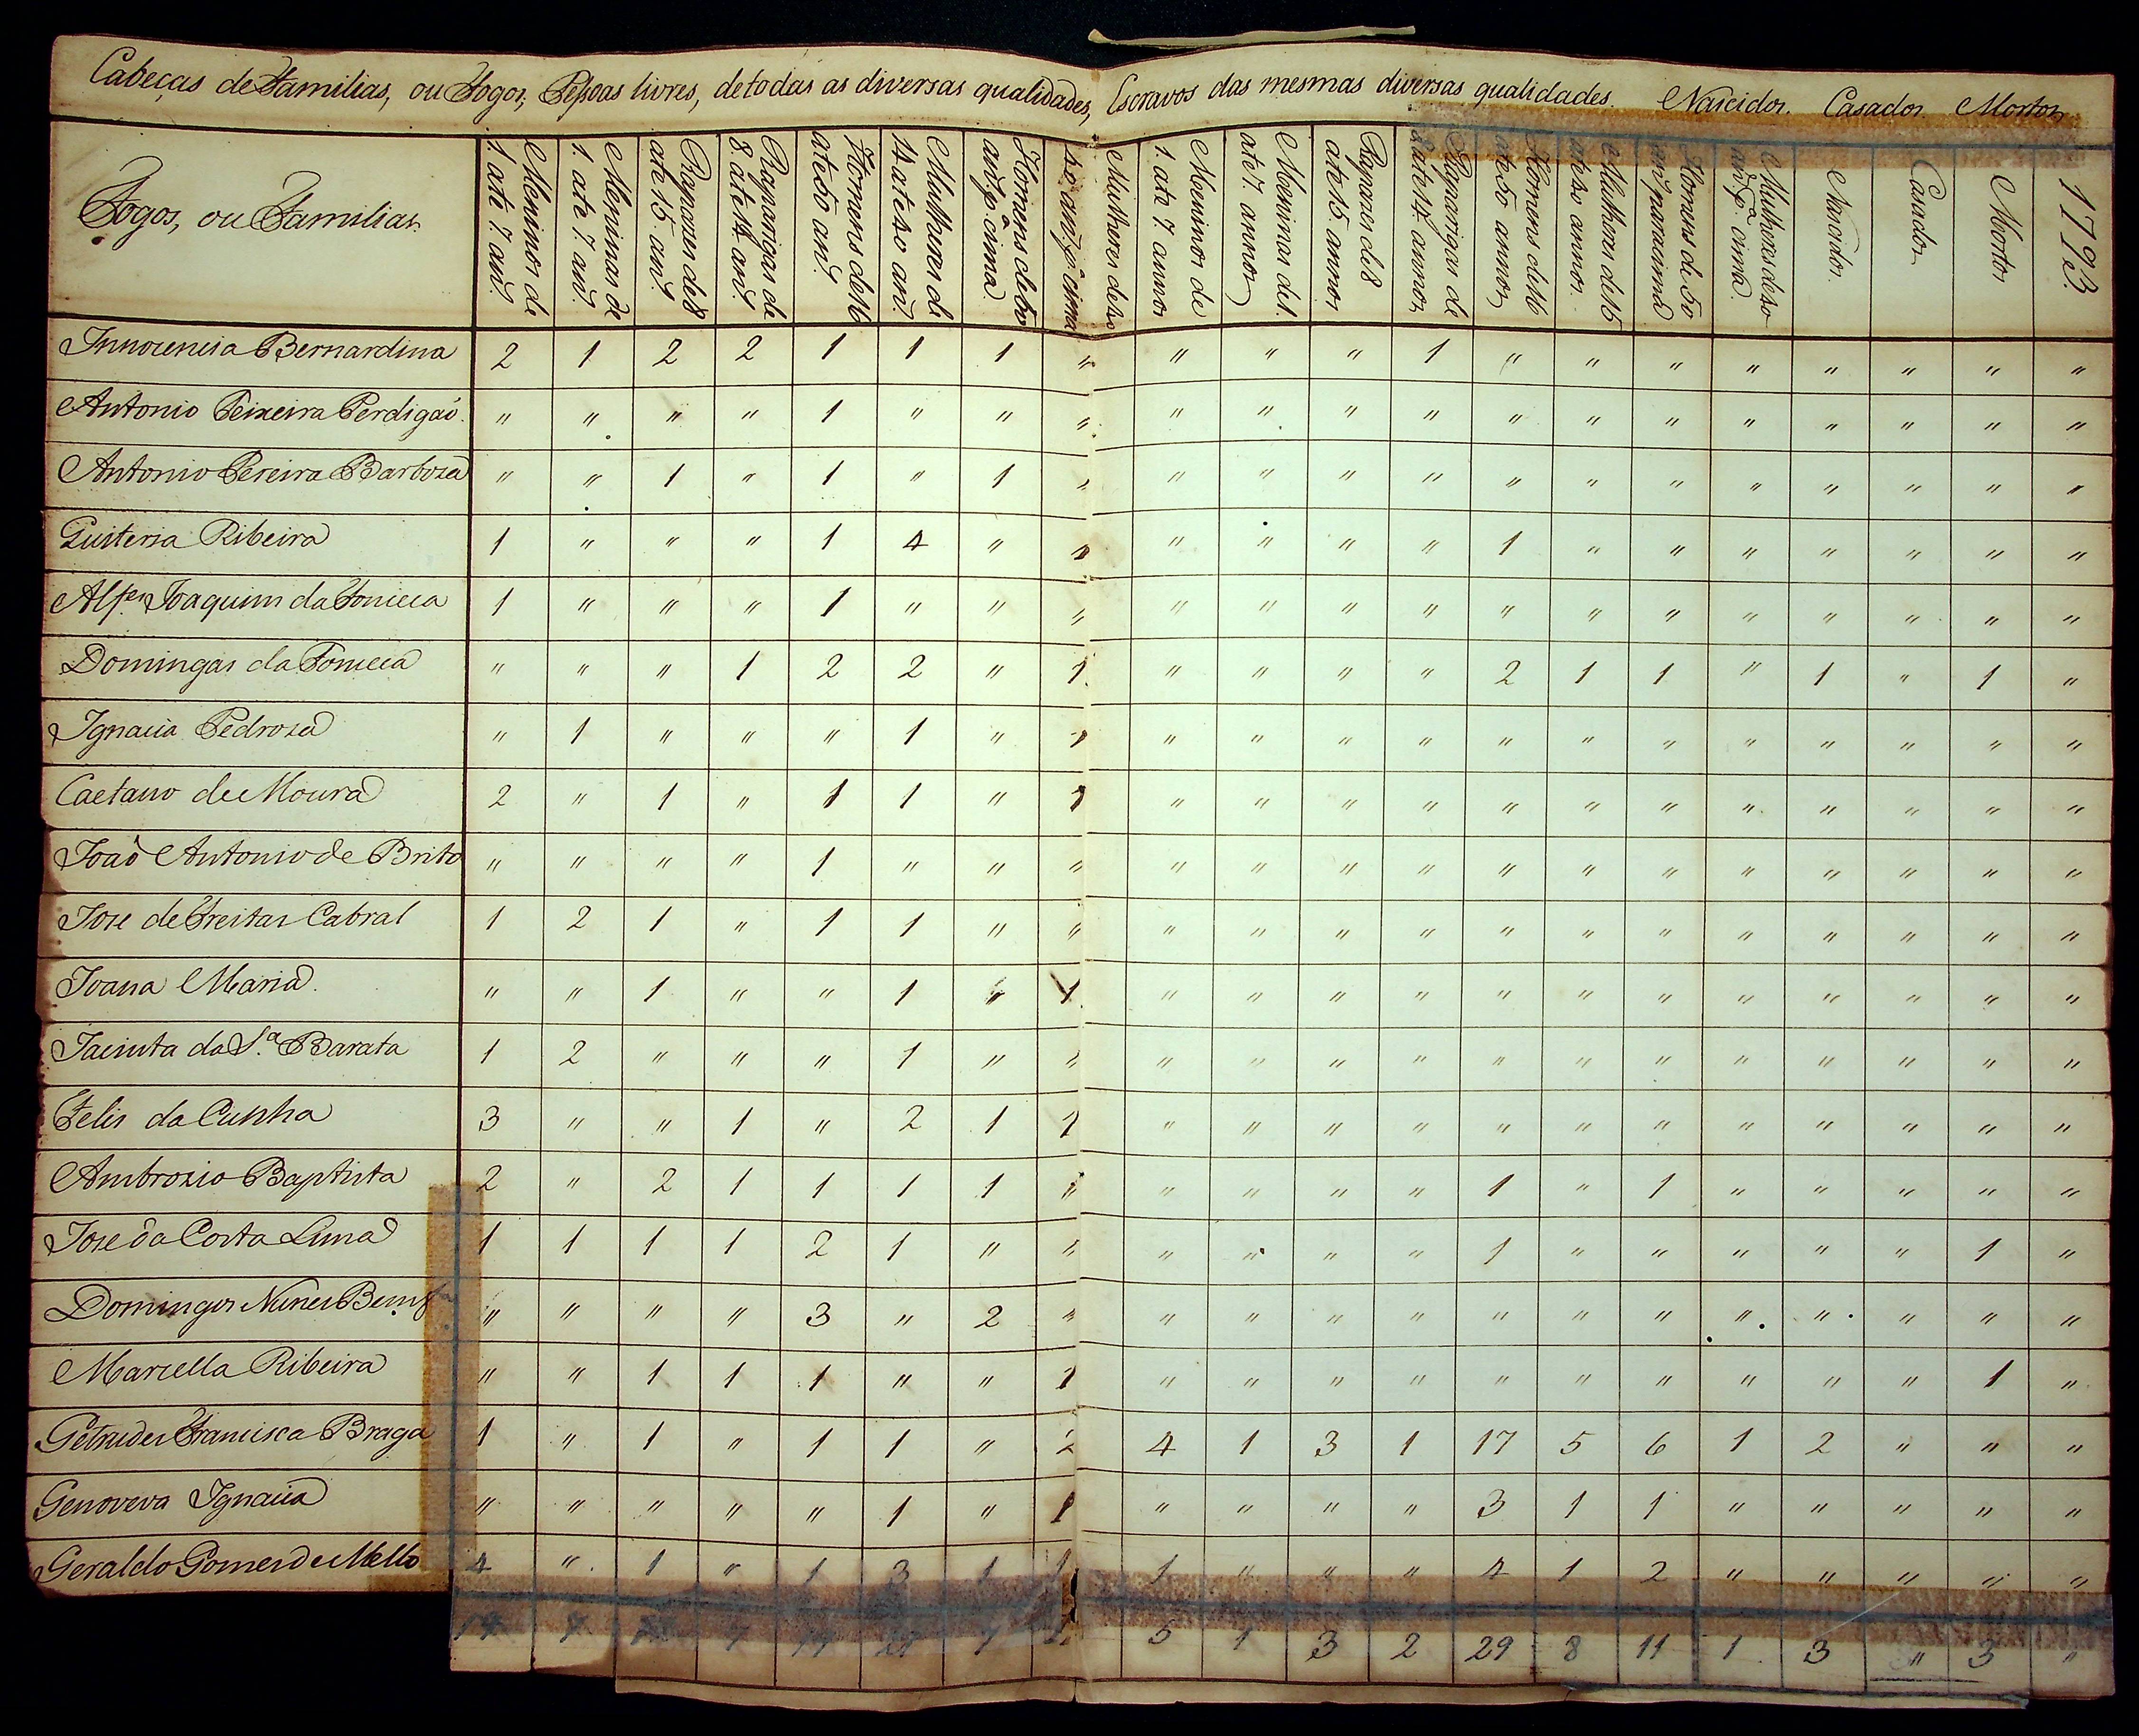 Cabeças de Familias, ou Fogos, Pessoas livres, de todas as diversas qualidades, Escravos das mesmas diversas qualidades. Nascidos. Casados. Mortos
Fogos, ou Familias.
Meninos de
1 ate 7. an.ˢ
Meninas de
1. ate 7. an.ˢ
Rapazes de 8
ate 15. an.ˢ
Raparigas de
8. ate 14 an.ˢ
Homens de 16
ate 50 an.ˢ
Mulheres de
14 ate 40 an.ˢ
Homens de 50
an.ˢ p.ª cima.
Mulheres de 40
40 an.ˢ p.ª cima
Meninos de
1. ate 7. annos
Meninas de 1.
ate 7. annos
Rapazes de 8
ate 15. annos
Raparigas de
8 ate 14. annos
Homens de 16
ate 50 annos
Mulheres de 15
ate 40 annos.
Homens de 50
an.ˢ para cima
Mulheres de 40
an.ˢ p.ª cima.
Nascidos.
Casados
Mortos
1793
Innocencia Bernardina 2 1 2 2 1 1 1 " " " " 1 " " " " " " " "
Antonio Teixeira Perdigaõ. " " " " 1 " " " " " " " " " " " " " " "
Antonio Pereira Barboza " " 1 " 1 " 1 " " " " " " " " " " " " "
Quiteria Ribeira 1 " " " 1 4 " " " " " 1 " " " " " " "
Alf.es Joaquim da Fonceca 1 " " " 1 " " " " " " " " " " " " " " "
Domingas da Fonceca " " " 1 2 2 " 1 " " " " 2 1 1 " 1 " 1 "
Ignacia Pedroza " 1 " " " 1 " 1 " " " " " " " " " " " "
Caetano de Moura 2 " 1 " 1 1 " 1 " " " " " " " " " " " "
Joaõ Antonio de Brito " " " " 1 " " " " " " " " " " " " " " "
Jose de Freitas Cabral 1 2 1 " 1 1 " " " " " " " " " " " " " "
Joana Maria. " " 1 " " 1 " 1 " " " " " " " " " " " "
Jacinta da S.ª Barata 1 2 " " " 1 " " " " " " " " " " " " " "
Felis da Cunha 3 " " 1 " 2 1 1 " " " " " " " " " " " "
Ambrozio Baptista 2 " 2 1 1 1 1 " " " " " 1 " 1 " " " " "
Jose da Costa Lima 1 1 1 1 2 1 " " " " " " 1 " " " " " 1 "
Domingos Nunes " " " " 3 " 2 " " " " " " " " " " " " "
Marcella Ribeira " " 1 1 1 " " 1 " " " " " " " " " " 1 "
Getrudes Francisca Braga 1 " 1 " 1 1 " 2 4 1 3 1 17 5 6 1 2 " " "
Genoveva Ignacia " " " " " 1 " 1 " " " " 3 1 1 " " " " "
Geraldo Gomes de Mello 4 " 1 " 1 3 1 1 1 " " " 4 1 2 " " " " "
5 1 3 2 29 8 11 1 3 " 3 "